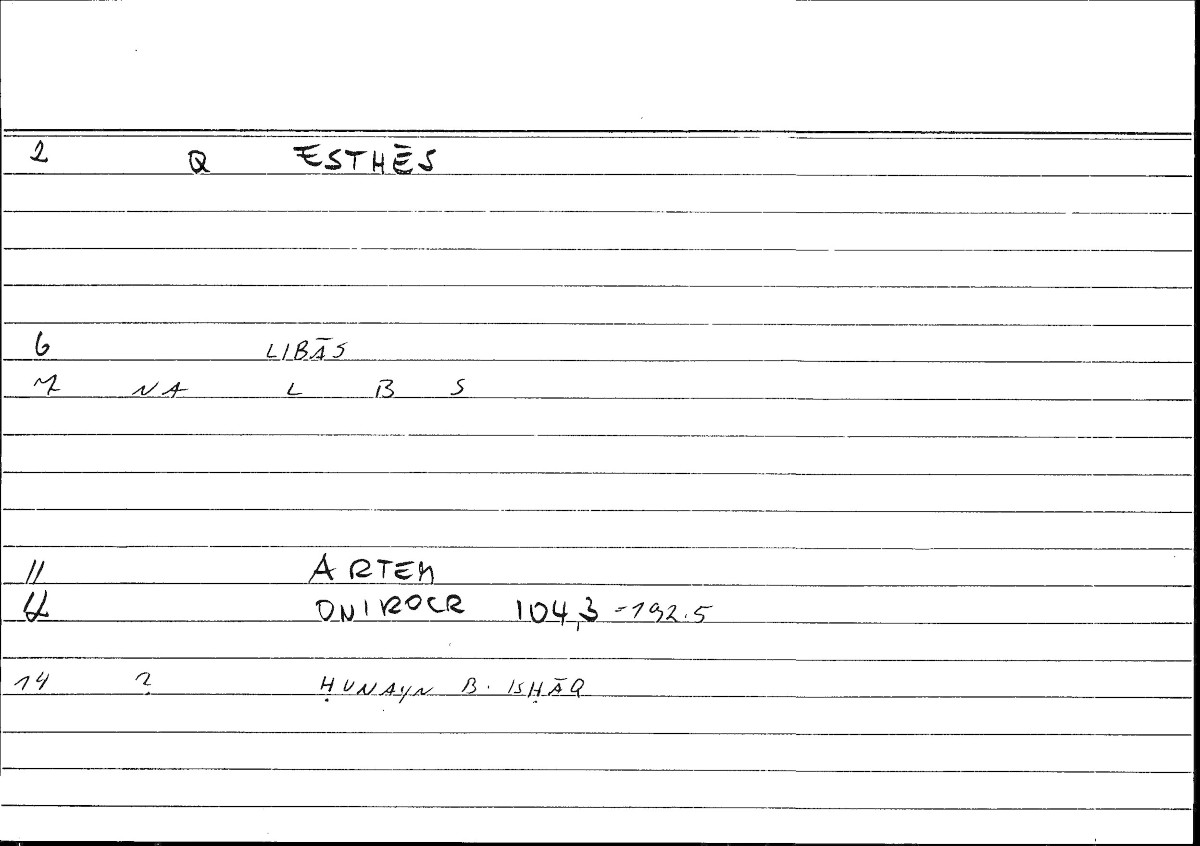 2 Q ESTHĒS
6 LIBĀS
7 NA L B S
11 ARTEM
12 ONIROCR 104,3 = 192.5
14 ? ḤUNAYN B. ISḤĀQ